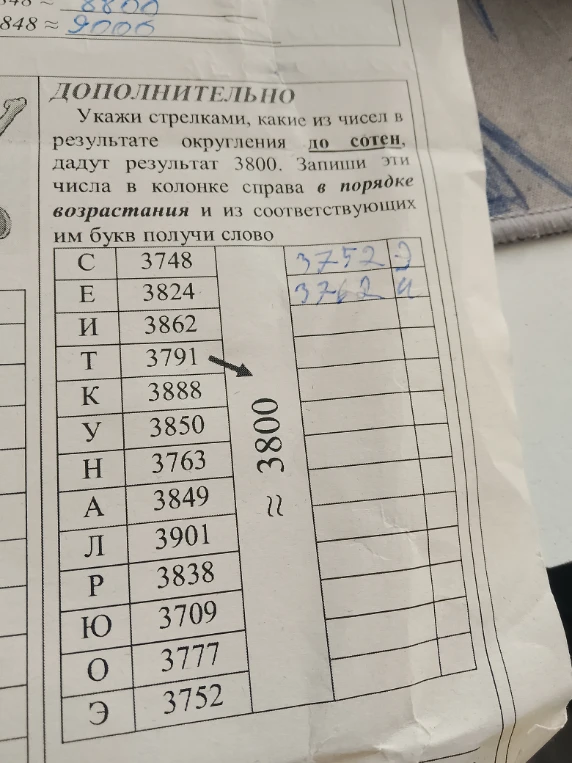 8800
848 ≈ 9000
ДОПОЛНИТЕЛЬНО
Укажи стрелками, какие из чисел в
результате округления до сотен,
дадут результат 3800. Запиши эти
числа в колонке справа в порядке
возрастания и из соответствующих
им букв получи слово
С 3748 3752 Э
Е 3824 3762 И
И 3862
Т 3791
К 3888
У 3850
Н 3763
А 3849
Л 3901
Р 3838
Ю 3709
О 3777
Э 3752
≈ 3800